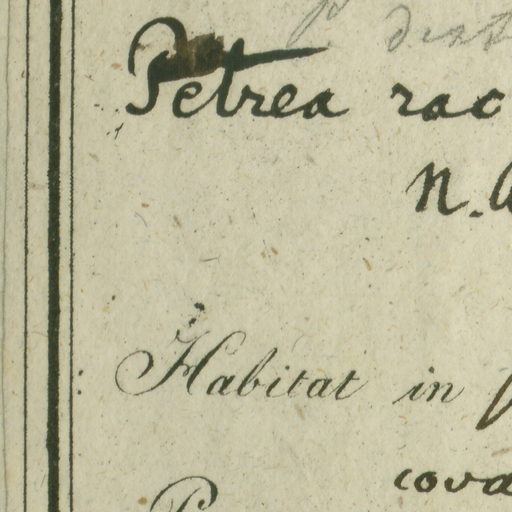 Petrea rac
N.
Habitat in
cova